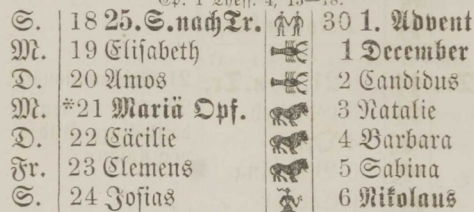 Ep. 1 Thess. 4, 13—18.
S. 18 25. S. nach Tr. 30 1. Advent
M. 19 Elisabeth 1 December
D. 20 Amos 2 Candidus
M. *21 Mariä Opf. 3 Natalie
D. 22 Cäcilie 4 Barbara
Fr. 23 Clemens 5 Sabina
S. 24 Josias 6 Nikolaus